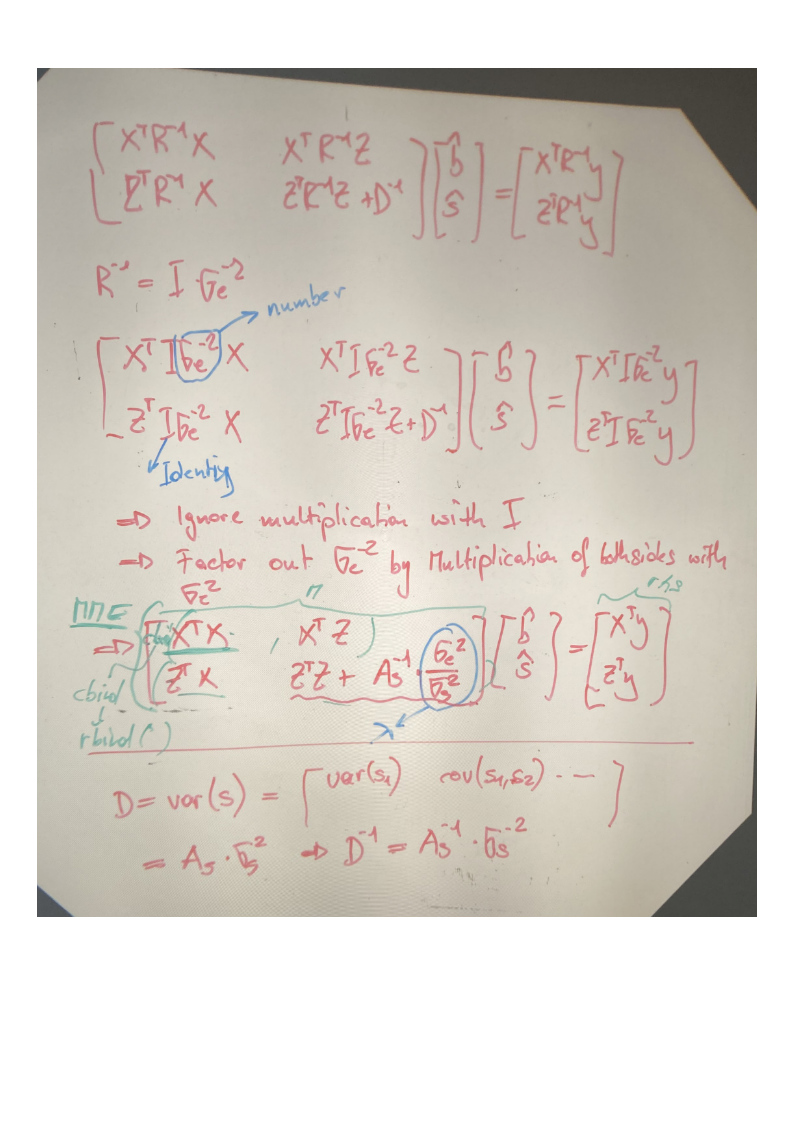 [ XᵀR⁻¹X XᵀR⁻¹Z ] [ b̂ ] = [ XᵀR⁻¹y ]
[ ZᵀR⁻¹X ZᵀR⁻¹Z + D⁻¹ ] [ ŝ ] [ ZᵀR⁻¹y ]
R⁻¹ = I · σₑ⁻²
number
[ XᵀIσₑ⁻²X XᵀIσₑ⁻²Z ] [ b̂ ] = [ XᵀIσₑ⁻²y ]
[ ZᵀIσₑ⁻²X ZᵀIσₑ⁻²Z + D⁻¹ ] [ ŝ ] [ ZᵀIσₑ⁻²y ]
Identity
⇒ Ignore multiplication with I
⇒ Factor out σₑ⁻² by Multiplication of both sides with
σₑ²
M rhs
MME
⇒ [ XᵀX , XᵀZ ] [ b̂ ] = [ Xᵀy ]
[ ZᵀX ZᵀZ + Aₛ⁻¹ · σₑ²/σₛ² ] [ ŝ ] [ Zᵀy ]
cbind
↓
rbind( )
λ
D = var(s) = [ var(s₁) cov(s₁,s₂) · — ]
= Aₛ · σₛ² ⇒ D⁻¹ = Aₛ⁻¹ · σₛ⁻²